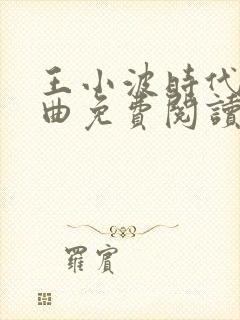 王小波時代
曲免費閱讀
羅賓